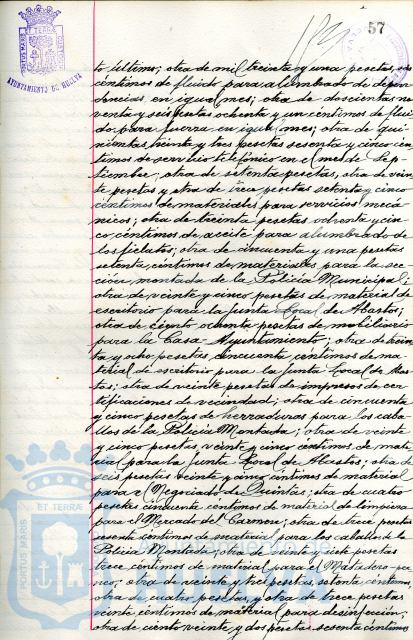 57
AYUNTAMIENTO DE HUELVA
to último; otra de mil treinta y una pesetas, seis
céntimos de fluido para alumbrado de depen-
dencias, en igual mes; otra de doscientas no-
venta y seis pesetas ochenta y un céntimos de flui-
do para fuerza en igual mes; otra de qui-
nientas treinta y tres pesetas sesenta y cinco cén-
timos de servicio telefónico en el mes de Sep-
tiembre; otra de setenta pesetas, otra de vein-
te pesetas y otra de tres pesetas setenta y cinco
céntimos de materiales para servicios mecá-
nicos; otra de treinta pesetas ochenta y cin-
co céntimos de aceite para alumbrado de
los fielatos; otra de cincuenta y una pesetas
setenta céntimos de materiales para la sec-
ción montada de la Policía Municipal;
otra de veinte y cinco pesetas de material de
escritorio para la Junta Local de Abastos;
otra de ciento ochenta pesetas de mobiliario
para la Casa-Ayuntamiento; otra de trein-
ta y ocho pesetas cincuenta céntimos de ma-
terial de escritorio para la Junta Local de Abas-
tos; otra de veinte pesetas de impresos de cer-
tificaciones de vecindad; otra de cincuenta
y cinco pesetas de herraduras para los caba-
llos de la Policía Montada; otra de veinte
y cinco pesetas, veinte y cinco céntimos de mate-
rial para la Junta Local de Abastos; otra de
seis pesetas veinte y cinco céntimos de material
para el Negociado de Quintas; otra de cuatro
pesetas cincuenta céntimos de material de limpieza
para el Mercado del Carmen; otra de trece pesetas
sesenta céntimos de material para los caballos de la
Policía Montada; otra de siete pesetas
trece céntimos de material para el Matadero pú-
blico; otra de veinte y tres pesetas, setenta céntimos,
otra de cuatro pesetas, y otra de trece pesetas
veinte céntimos de material para desinfección;
otra de ciento veinte y dos pesetas sesenta céntimos
PORTUS MARIS ET TERRAE